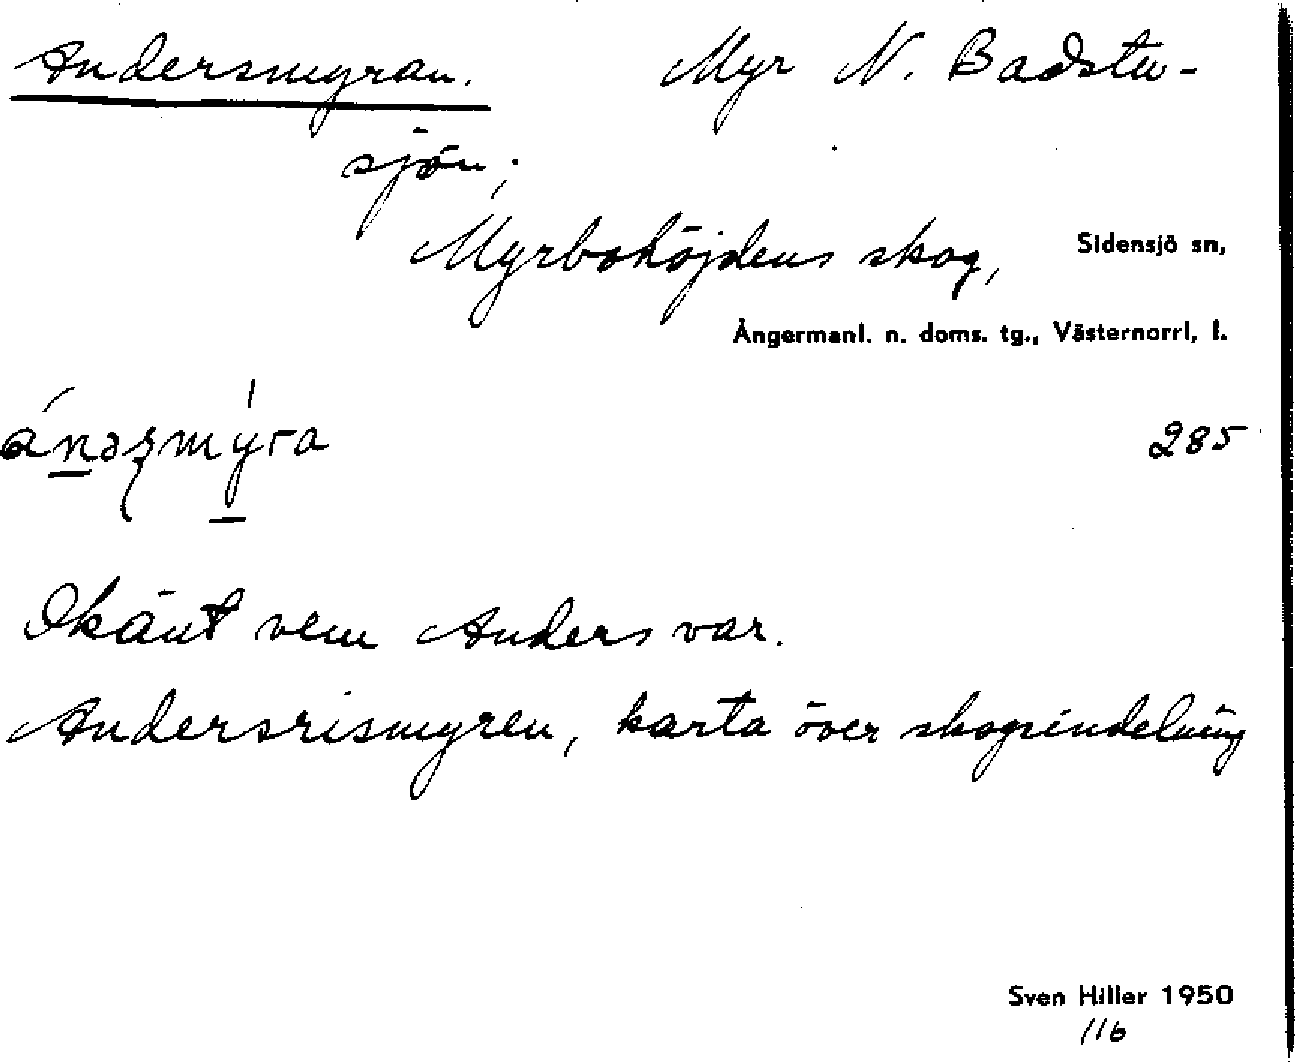 Andersmyran. Myr N. Badstu-
sjön;
Myrbohöjdens skog, Sidensjö sn,
Ångermanl. n. doms. tg., Västernorrl. l.
285
Okänt vem Anders var.
Andersrismyren, karta över skogsindelning
Sven Hiller 1950
116